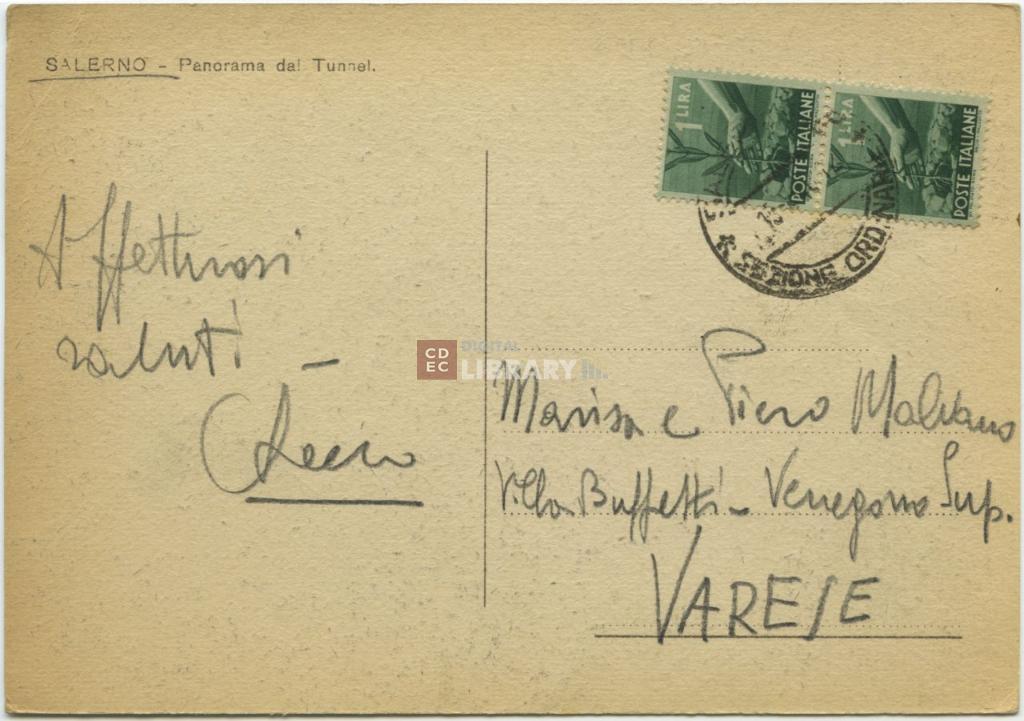 SALERNO - Panorama dal Tunnel.
1 LIRA
POSTE ITALIANE
1 LIRA
POSTE ITALIANE
SEZIONE ORDINARIE
Affettuosi
saluti -
CD
EC
DIGITAL
LIBRARY
Marisa e Piero
Villa Buffetti - Venegono Sup.
VARESE